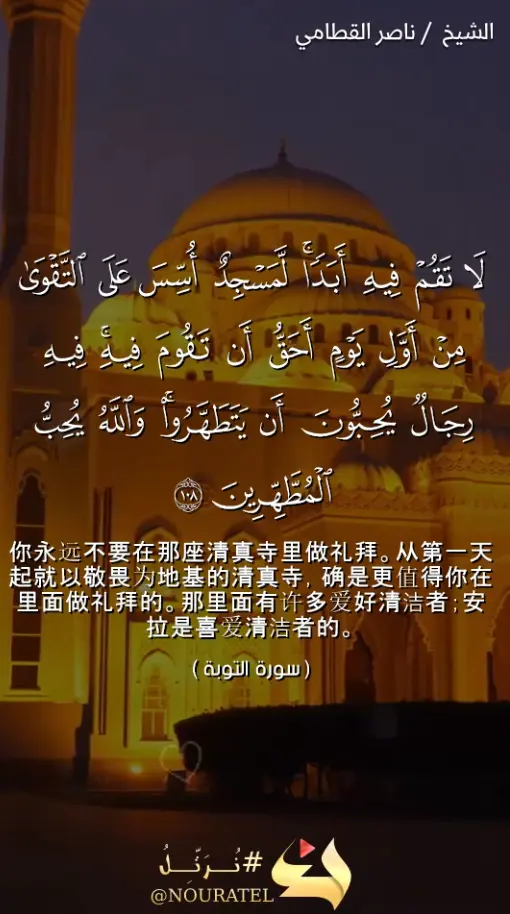 الشيخ / ناصر القطامي
لَا تَقُمۡ فِيهِ أَبَدٗاۚ لَّمَسۡجِدٌ أُسِّسَ عَلَى ٱلتَّقۡوَىٰ
مِنۡ أَوَّلِ يَوۡمٍ أَحَقُّ أَن تَقُومَ فِيهِۚ فِيهِ
رِجَالٞ يُحِبُّونَ أَن يَتَطَهَّرُواْۚ وَٱللَّهُ يُحِبُّ
ٱلۡمُطَّهِّرِينَ ١٠٨
你永远不要在那座清真寺里做礼拜。从第一天
起就以敬畏为地基的清真寺, 确是更值得你在
里面做礼拜的。那里面有许多爱好清洁者;安
拉是喜爱清洁者的。
( سورة التوبة )
#نُـرَتِّـلُ
@NOURATEL